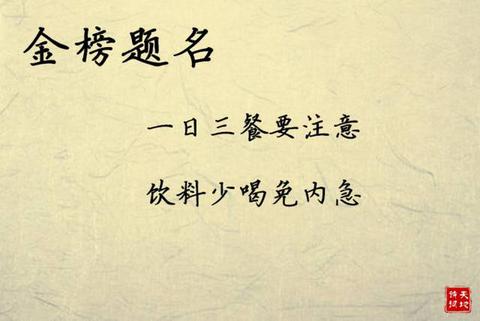 金榜题名
一日三餐要注意
饮料少喝免内急